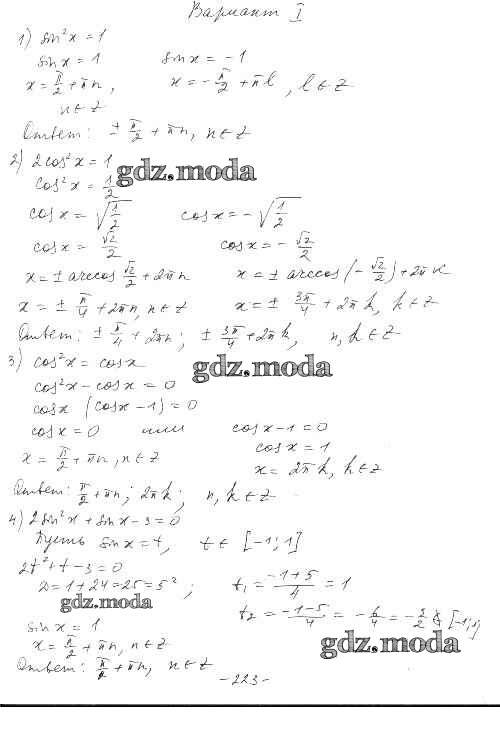 Вариант I
1) sin²x = 1
sin x = 1 sin x = -1
x = π/2 + πn, x = -π/2 + πl, l ∈ Z
n ∈ Z
Ответ: ± π/2 + πn, n ∈ Z
2) 2cos²x = 1
gdz.moda
cos²x = 1/2
cos x = √(1/2) cos x = -√(1/2)
cos x = √2/2 cos x = -√2/2
x = ± arccos √2/2 + 2πn x = ± arccos(-√2/2) + 2πk
x = ± π/4 + 2πn, n ∈ Z x = ± 3π/4 + 2πk, k ∈ Z
Ответ: ± π/4 + 2πn; ± 3π/4 + 2πk, n, k ∈ Z
gdz.moda
3) cos²x = cos x
cos²x - cos x = 0
cos x (cos x - 1) = 0
cos x = 0 или cos x - 1 = 0
cos x = 1
x = π/2 + πn, n ∈ Z x = 2πk, k ∈ Z
Ответ: π/2 + πn; 2πk; n, k ∈ Z
4) 2sin²x + sin x - 3 = 0
Пусть sin x = t, t ∈ [-1; 1]
2t² + t - 3 = 0
D = 1 + 24 = 25 = 5²; t₁ = (-1+5)/4 = 1
gdz.moda
t₂ = (-1-5)/4 = -6/4 = -3/2 ∉ [-1; 1]
sin x = 1
gdz.moda
x = π/2 + πn, n ∈ Z
Ответ: π/2 + πn, n ∈ Z
- 223 -